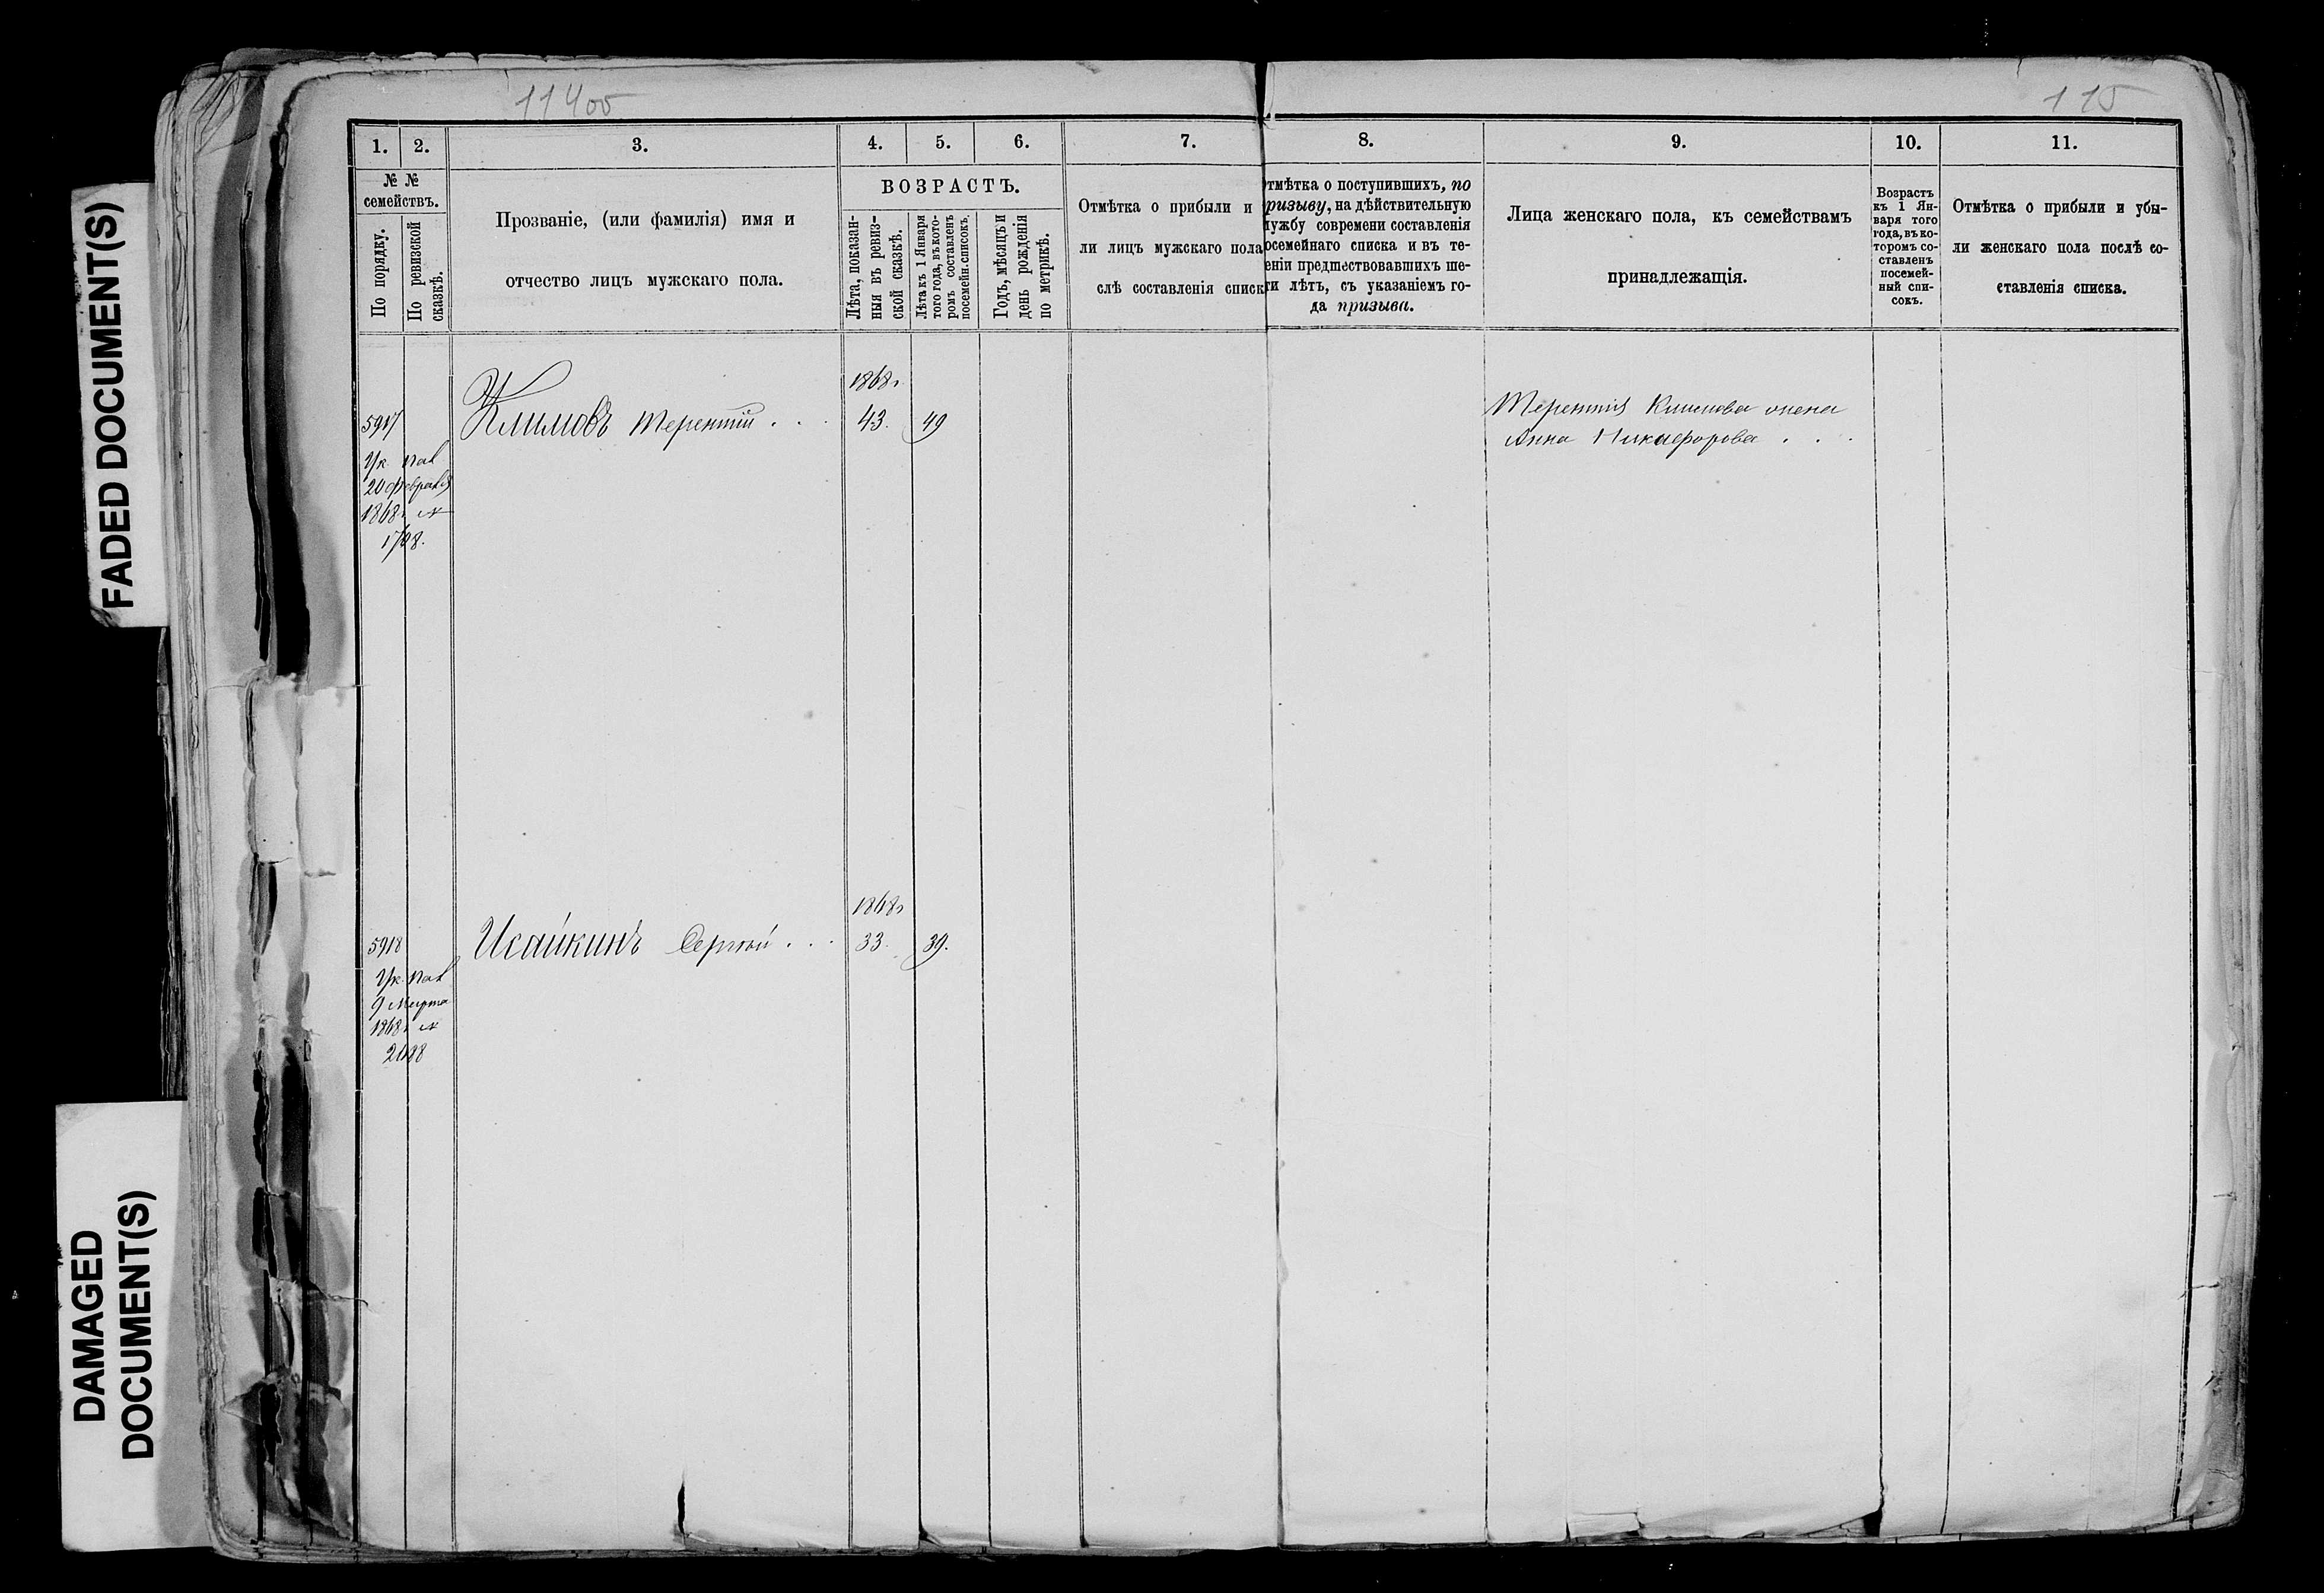 FADED DOCUMENT(S)
DAMAGED
DOCUMENT(S)
114об
115
1. 2. 3. 4. 5. 6. 7. 8. 9. 10. 11.
№ №
семействъ.
По порядку.
По ревизской
сказкѣ.
Прозваніе, (или фамилія) имя и
отчество лицъ мужскаго пола.
ВОЗРАСТЪ.
Лѣта, показан-
ныя въ ревиз-
ской сказкѣ.
Лѣта къ 1 Января
того года, въ кото-
ромъ составленъ
посемейн. списокъ.
Годъ, мѣсяцъ и
день рожденія
по метрикѣ.
Отмѣтка о прибыли и
ли лицъ мужскаго пола
слѣ составленія списк
тмѣтка о поступившихъ, по
ризыву, на дѣйствительную
лужбу современи составленія
осемейнаго списка и въ те-
еніи предшествовавшихъ ше-
ти лѣтъ, съ указаніемъ го-
да призыва.
Лица женскаго пола, къ семействамъ
принадлежащія.
Возрастъ
къ 1 Ян-
варя того
года, въ ко-
торомъ со-
ставленъ
посемей-
ный спи-
сокъ.
Отмѣтка о прибыли и убы-
ли женскаго пола послѣ со-
ставленія списка.
1868г
5917 Климовъ Терентій . . . 43. 49
Терентія Климова жена
Анна Никифорова . . .
Ук. Пал
20 февраля
1868г №
1798.
1868г
5918 Исайкинъ Сергѣй . . . 33. 39.
Ук. Пал
9 Марта
1868г №